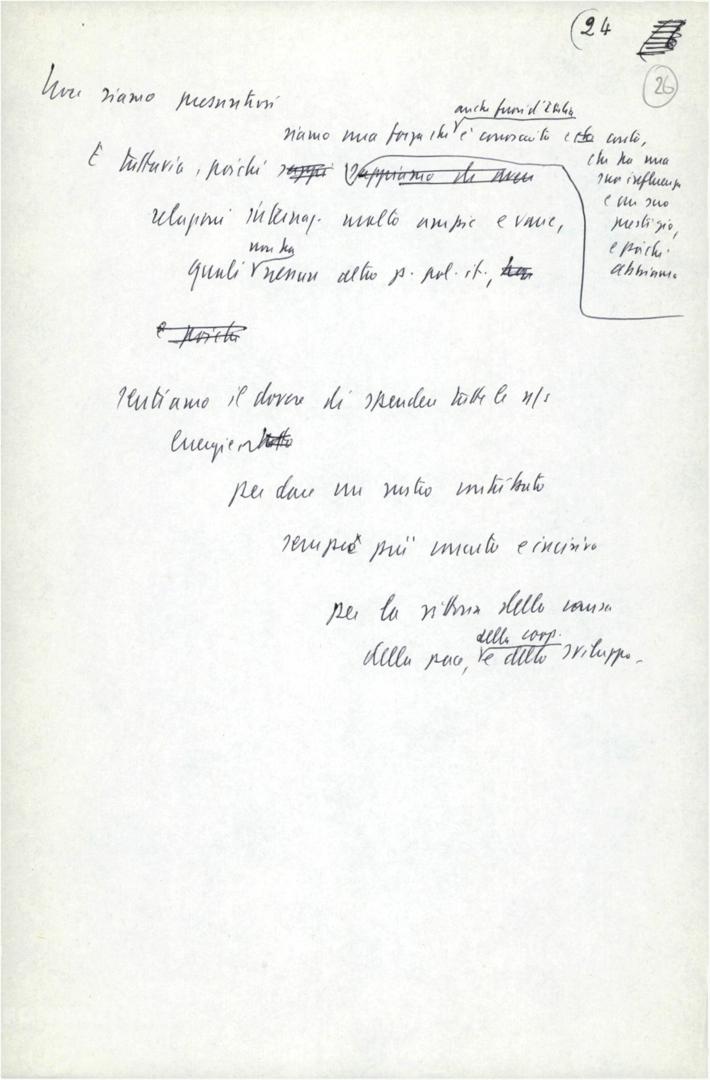 (24
26
Non siamo presuntuosi
anche fuori d'Italia
siamo una forza che è conosciuta e conta,
che ha una
sua influenza
e un suo
prestigio,
e poiché
abbiamo
E tuttavia, poiché sappi sappiamo di aver
relazioni internaz. molto ampie e varie,
non ha
quali nessun altro p. pol. it.,
e poiché
sentiamo il dovere di spendere tutte le n/s
energie
per dare un nostro contributo
sempre più concreto e incisivo
per la vittoria della causa
della coop.
della pace, e dello sviluppo.